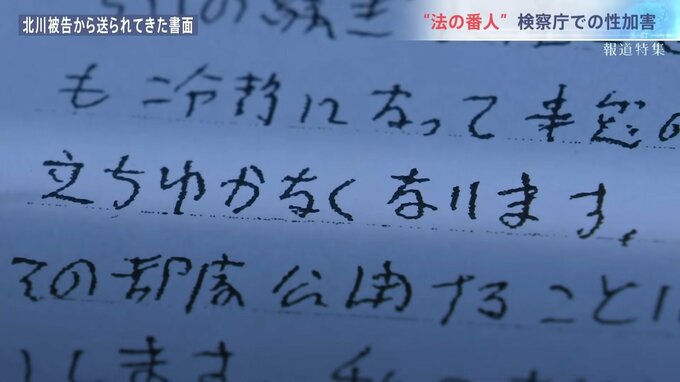 北川被告から送られてきた書面
“法の番人” 検察庁での性加害
報道特集
も冷静になって事態の
立ちゆかなくなります。
その都度公開することに
します